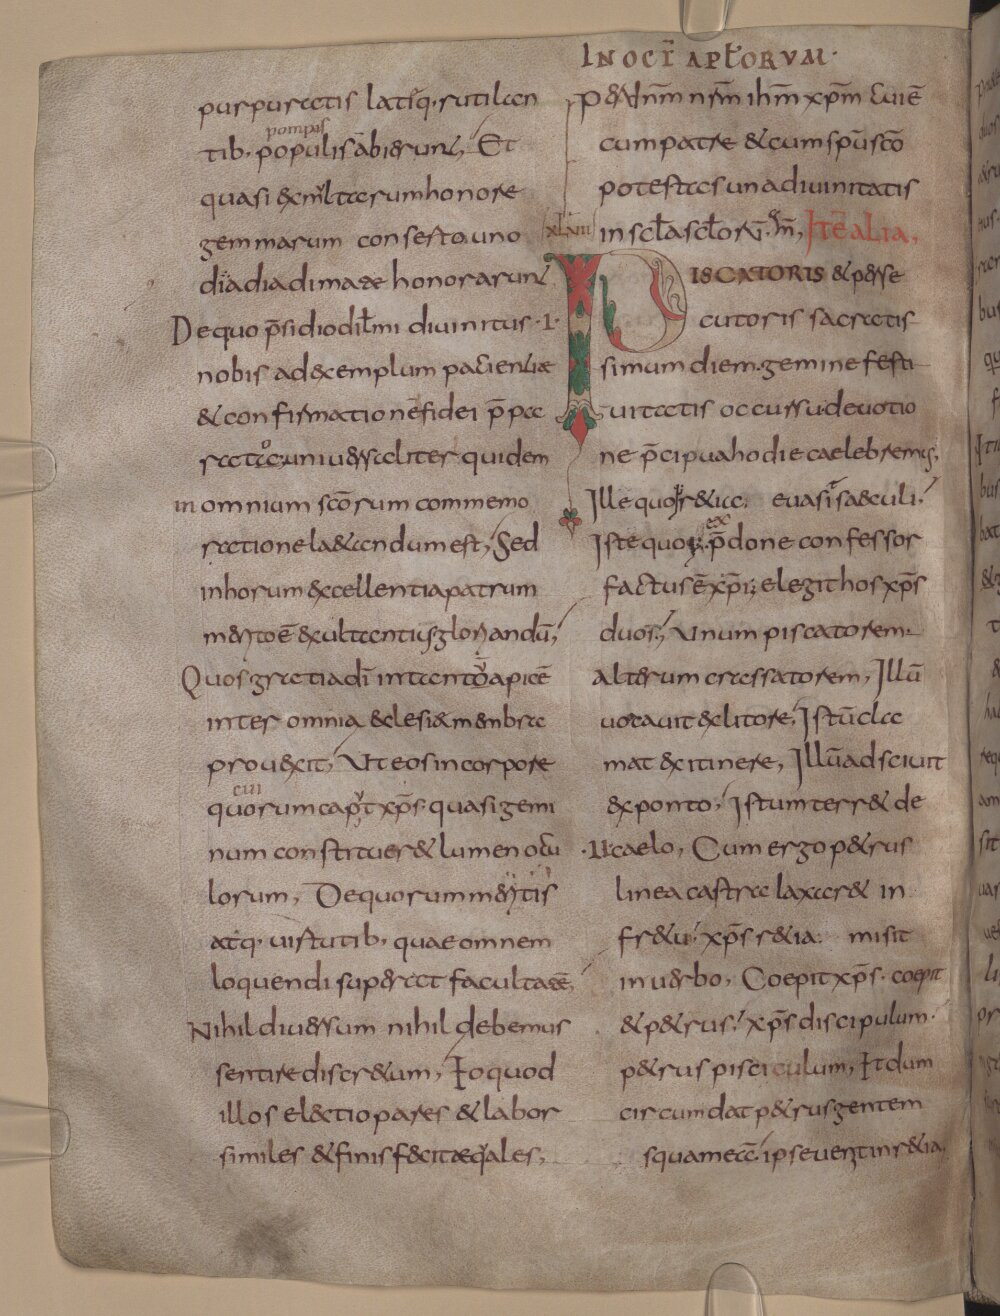 IN OCT̄ APŁORUM·
purpuratis latisq· rutilan
tib· populis abierunt, Et
pompis
quasi ex multarum honore
gemmarum conserta uno
die diademate honorarunt
De quo p̄sidio diłmi diuinitus ·I·
nobis ad exemplum pacientiae
& confirmationē fidei p̄pa
rato, uniuersaliter quidem
in omnium sc̄orum commemo
ratione laetandum est, Sed
in horum excellentia patrum
merito ē exultantius gloriandū,
Quos gratia dī in tantū apicē
inter omnia ecclesiae membra
prouexit, Ut eos in corpore
cui
quorum caput xp̄s· quasi gemi
num constitueret lumen oculo
lorum, De quorum meritis
atq· uirtutib· quae omnem
loquendi superat facultatē,
Nihil diuersum nihil debemus
sentire discretum, Ido quod
illos et electio pares & labor
similes & finis fecit aequales,
P& dn̄m nr̄m ihm̄ xp̄m Cui ē
cum patre & cum sp̄u sc̄o
potestas una diuinitatis
XLVIII
in scła scłorū· am̄, Itē alia,
PISCATORIS & perse
cutoris sacratis
simum diem· gemine festi
uitatis occursu deuotio
ne p̄cipua hodie caelebremus,
Ille quor& iac& euasit saeculi·
ex
Iste quo p̄done confessor
factus ē xp̄i; elegit hos xp̄s
duos, Unum piscatorem·
alterum crassatorem, Illū
uocauit e litore, Istū cla
mat ex itinere, Illū adsciuit
ex ponto, Istum terret de
·II· caelo, Cum ergo petrus
linea castra laxaret in
fretu, xp̄s retia misit
in uerbo, Coepit xp̄s· coepit
& petrus, xp̄s discipulum·
petrus pisciculum, Et dum
circumdat petrus gentem
squamea, ipse uertit in retia,